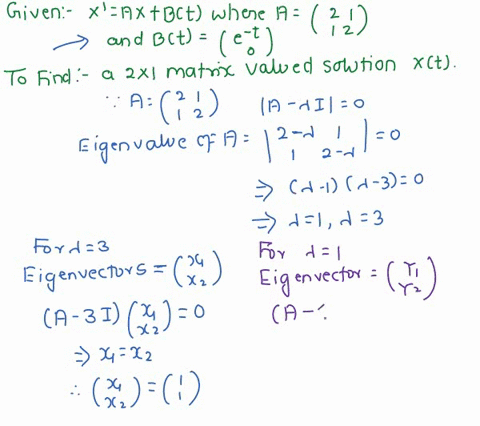 Given:- X' = AX + B(t) where A = (2 1
1 2)
→ and B(t) = (e^-t
0)
To Find:- a 2x1 matrix valued solution X(t).
∵ A: (2 1
1 2)
|A - λI| = 0
Eigenvalue of A = |2-λ 1
1 2-λ| = 0
⇒ (λ-1) (λ-3) = 0
⇒ λ=1, λ=3
For λ=3
Eigenvectors = (x1
x2)
(A-3I) (x1
x2) = 0
⇒ x1 = x2
∴ (x1
x2) = (1
1)
For λ=1
Eigenvector = (Y1
Y2)
(A -